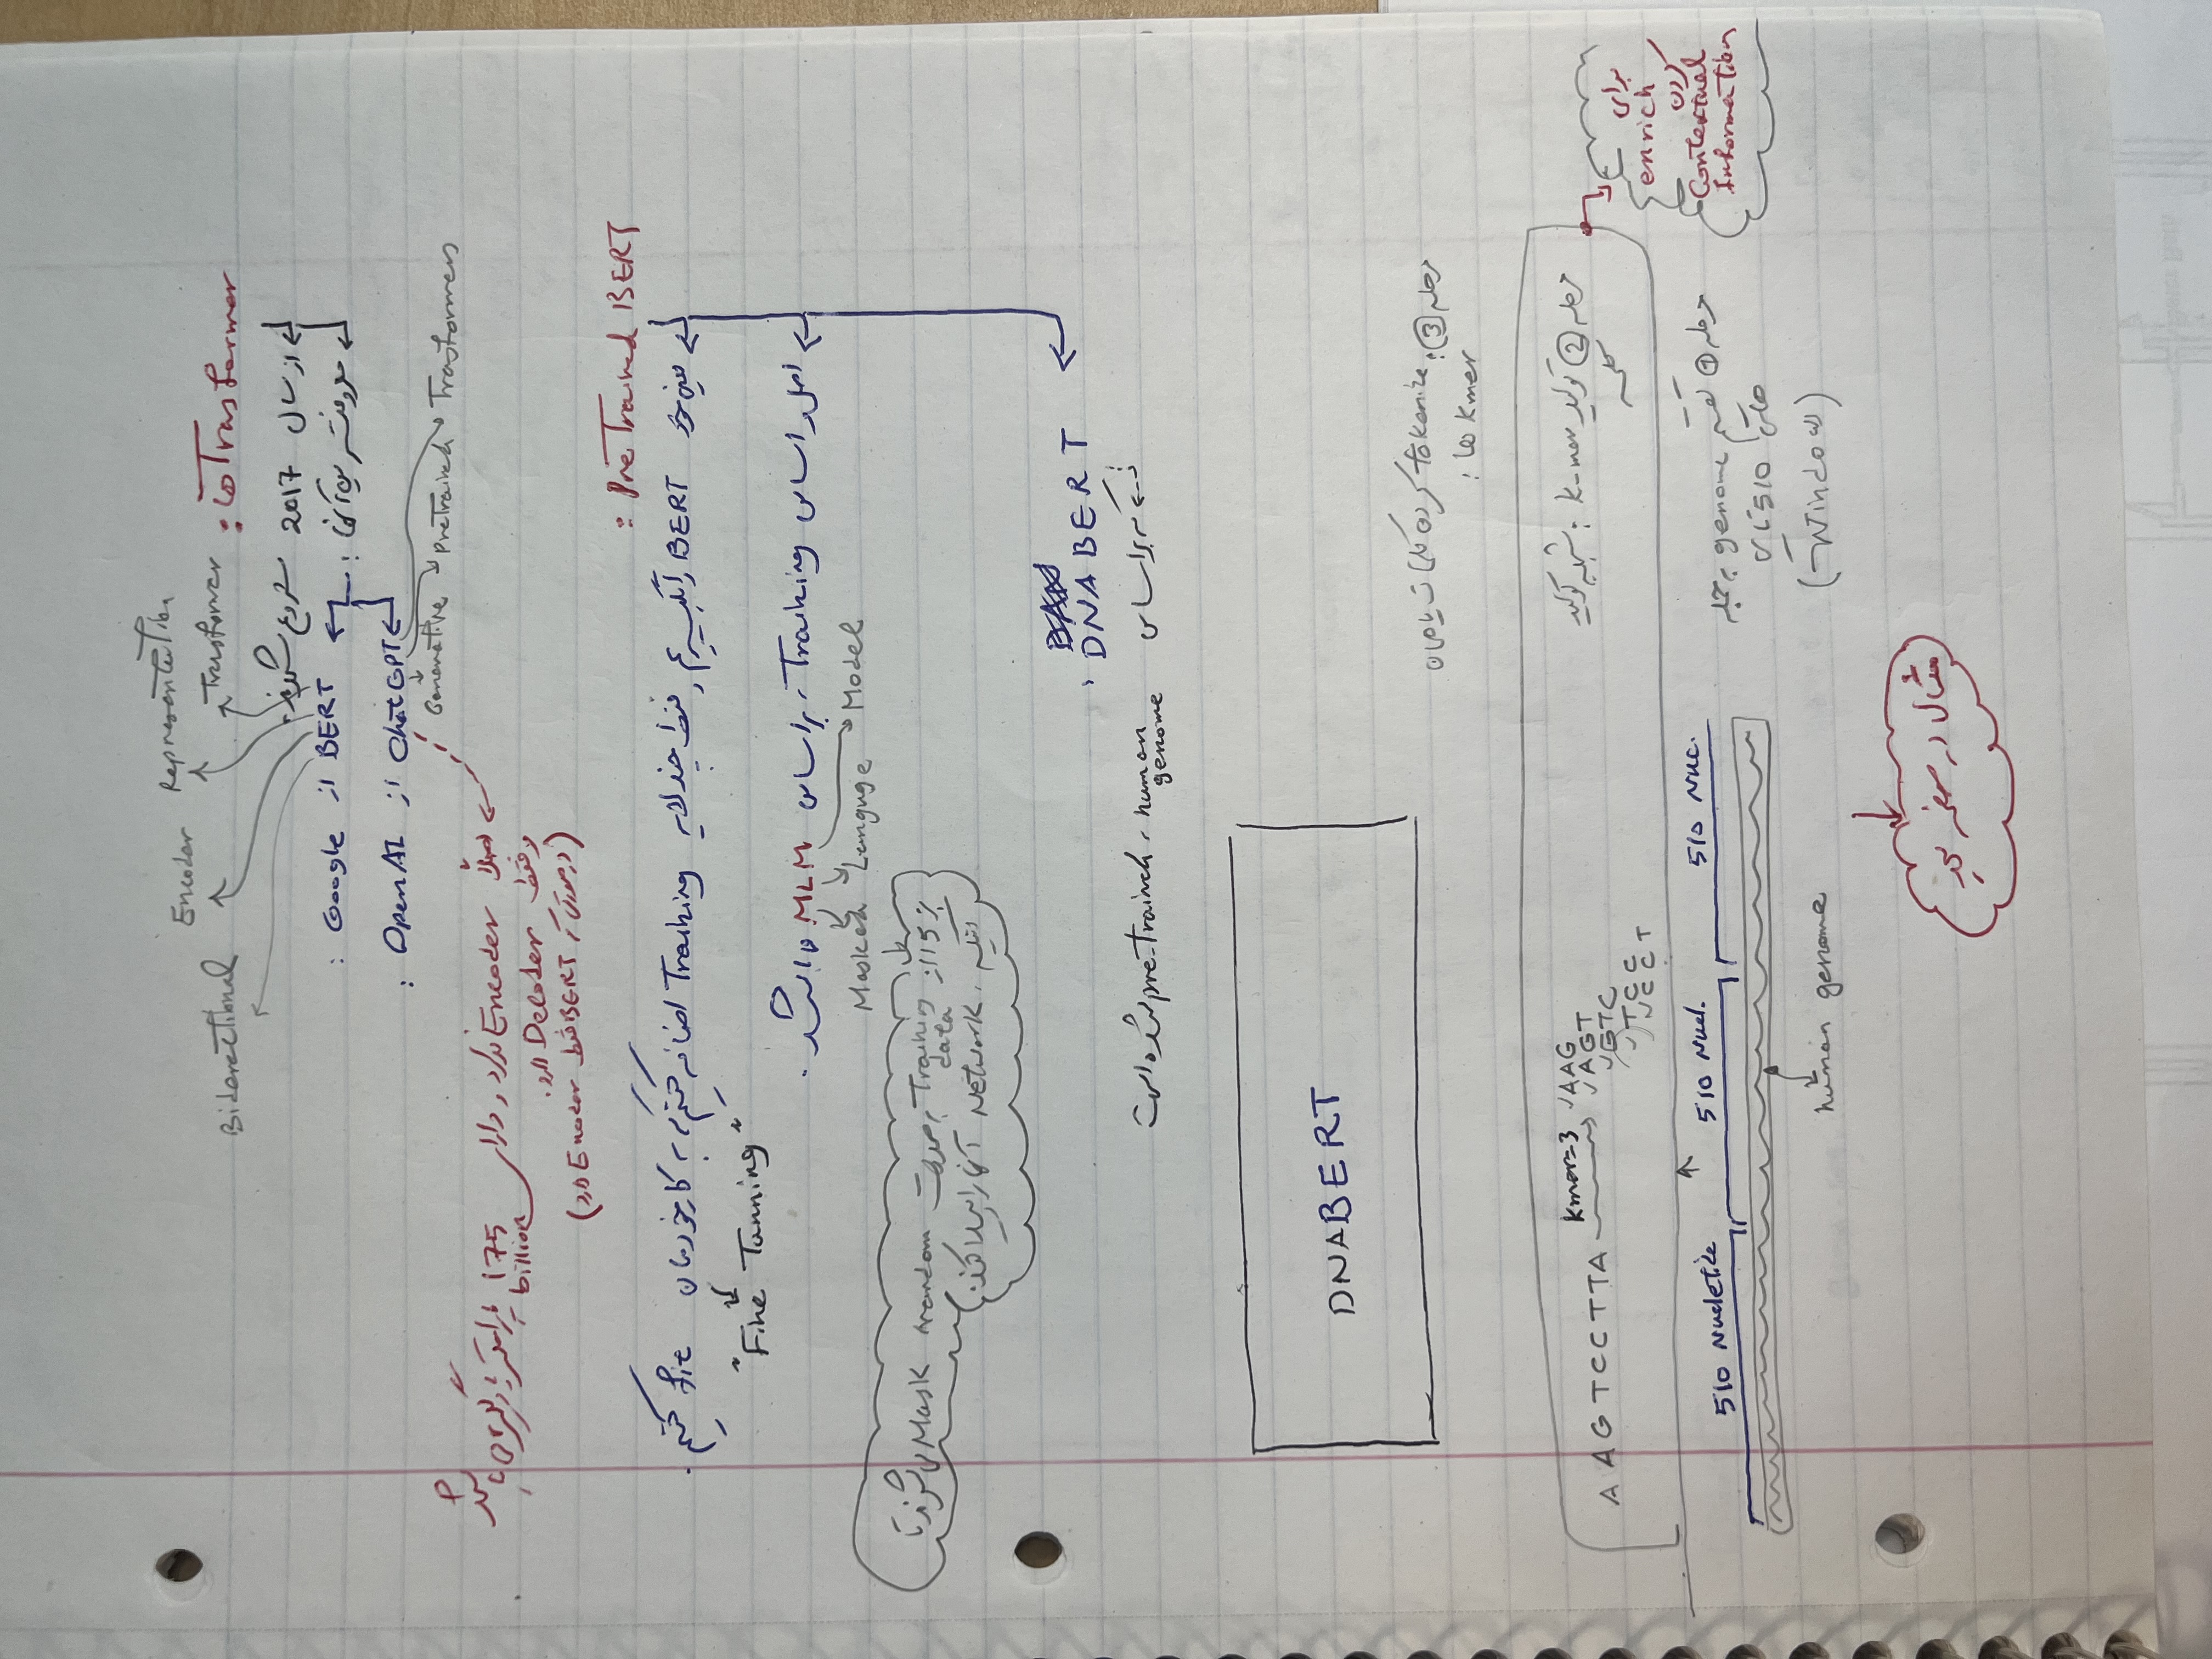 Encoder Representation
Bidirectional Trasformer
Trasformer ها :
از سال 2017 شروع شدند.
معروفترین آنها : BERT از Google :
ChatGPT از OpenAI :
Generative PreTrained Trasformers
اصلاً Encoder ندارد و دارای 175 billion پارامتر یادگیری می باشد
و فقط Decoder دارد.
(در صورتی که BERT فقط Encoder دارد)
PreTrained BERT :
یعنی خود BERT را بگیریم و فقط چند لایه Training اضافه کنیم که به کار خودمان fit کنیم.
"Fine Tunning"
اصل و اساس Training، بر اساس MLM ها باشد.
Masked Languge Model
15٪ از Training data به صورت random Mask می شوند تا
اینکه Network آنها را پیدا کند.
DNABERT :
که بر اساس human genome، pre-trained شده است
DNABERT
مرحله 3: tokenize کردن کلمات یا همان
kmer ها :
مرحله 2 تولید k-mer : شبیه تولید
کلمه
AAGTCCTTA kmer=3 AAG
AGT
GTC
TCC
CCT
برای
enrich
کردن
Contextual
Information
مرحله 1 تقسیم genome به جمله
های 510 تایی
(Window)
510 Nucletide 510 Nucl. 510 Nuc.
human genome
مثال در صفحه بعد